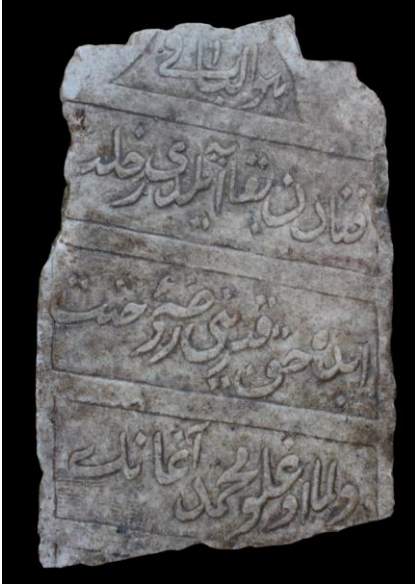 هو الباقي
فنادن بقايه ايلدي رحلت
ايده حق قبريني روضهٔ جنت
اوغلو محمد آغانك